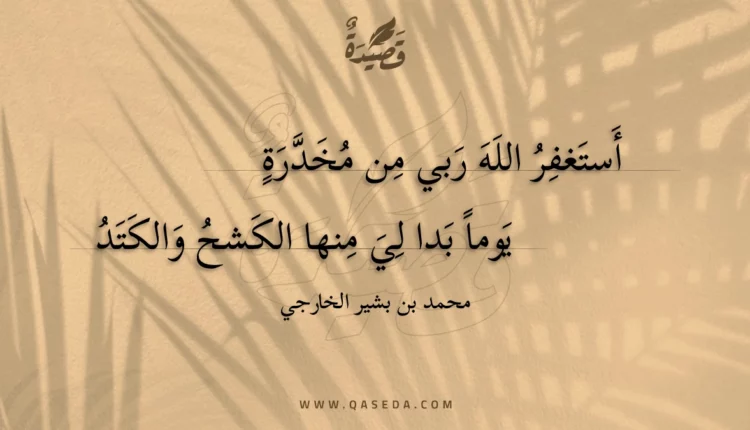 قَصِيدَةٌ
أَستَغفِرُ اللَهَ رَبي مِن مُخَدَّرَةٍ
يَوماً بَدا لِيَ مِنها الكَشحُ وَالكَتَدُ
محمد بن بشير الخارجي
WWW.QASEDA.COM